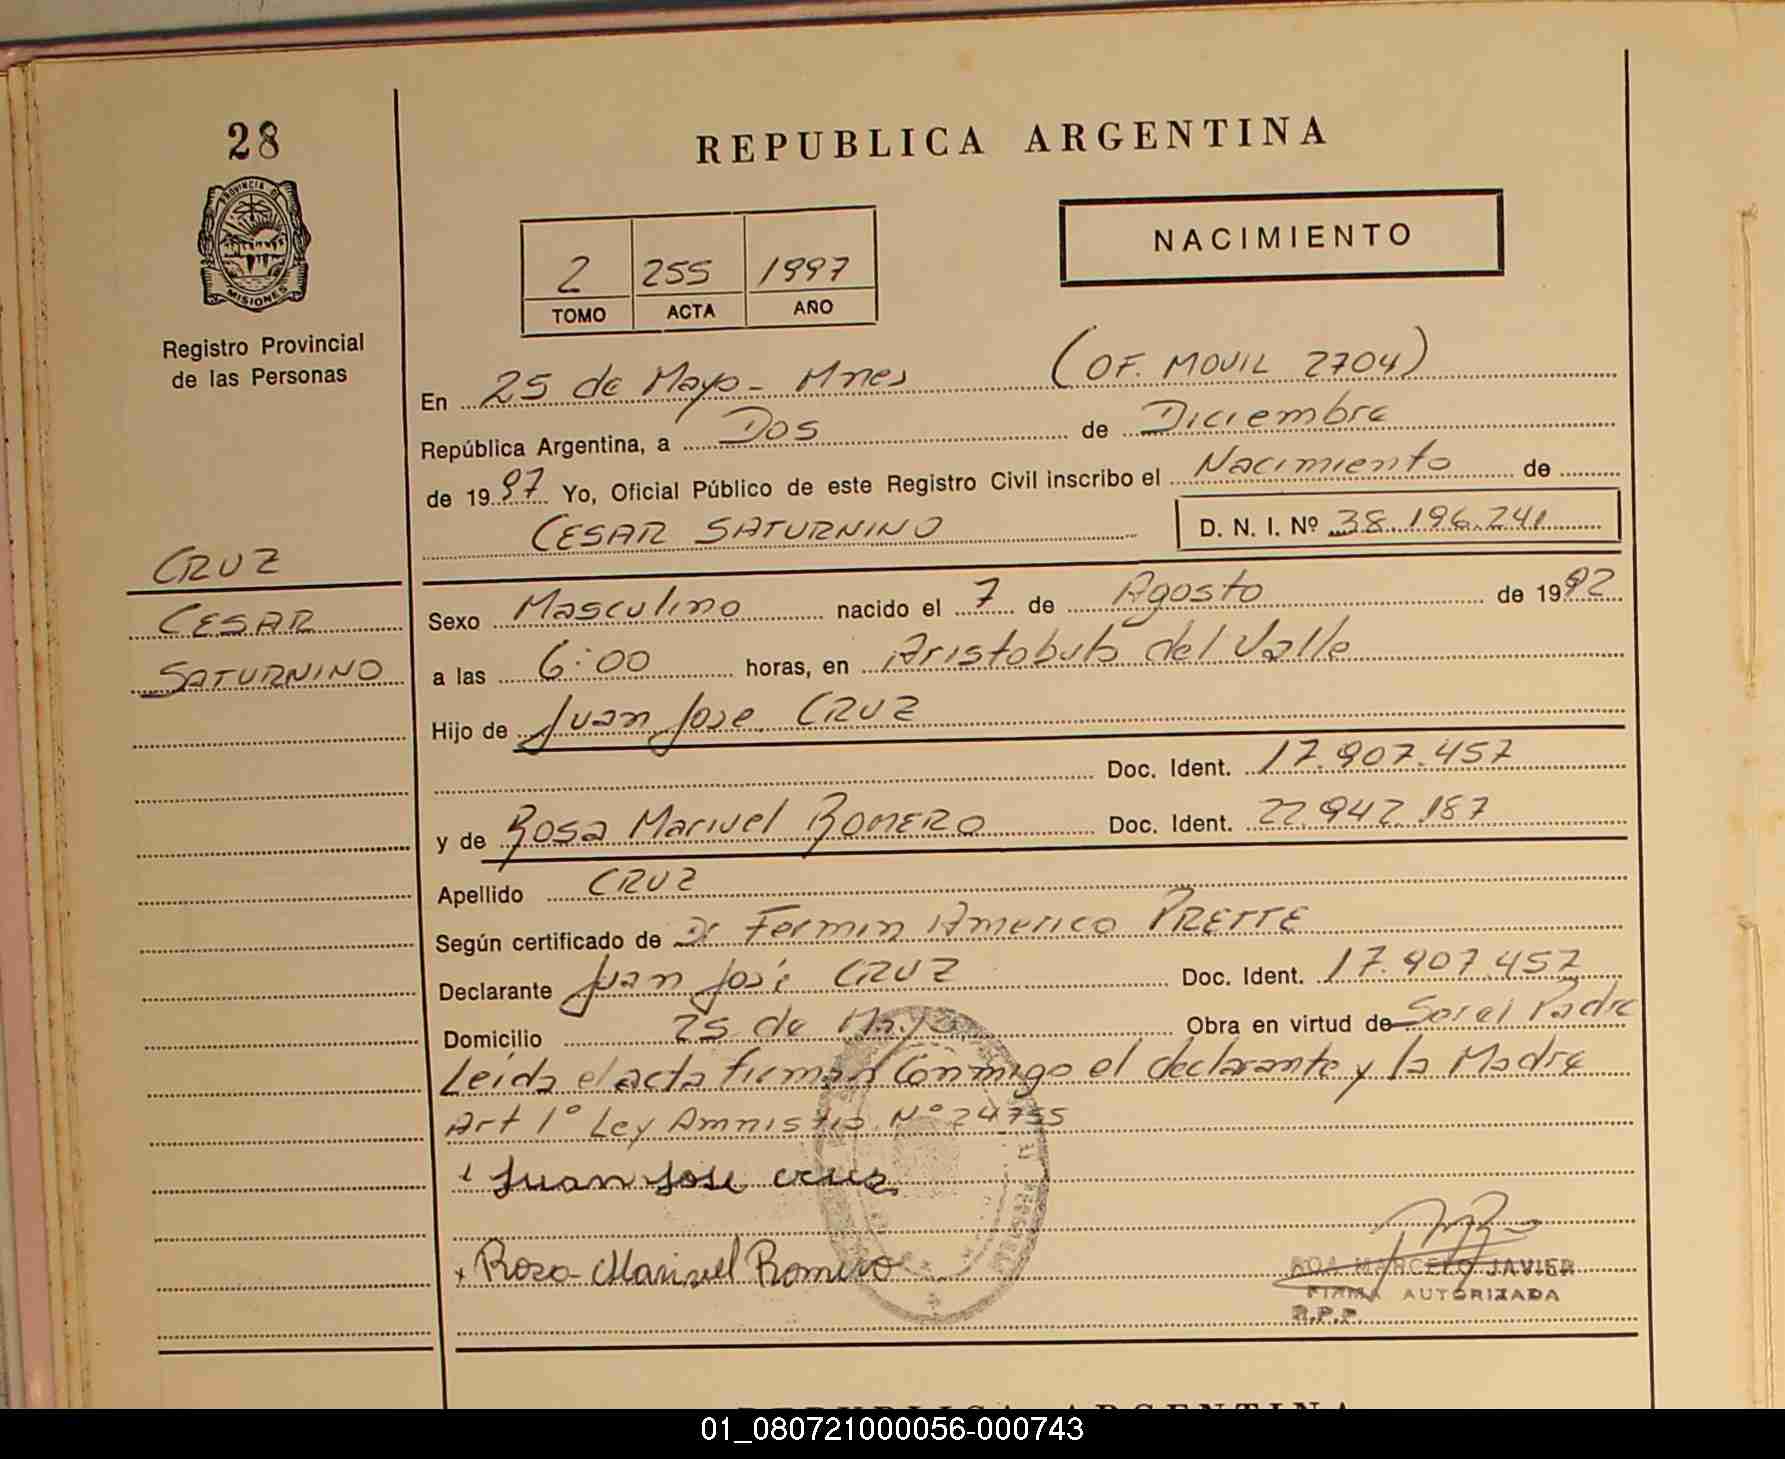 28
REPUBLICA ARGENTINA
PROVINCIA DE
MISIONES
Registro Provincial
de las Personas
2 255 1997
TOMO ACTA AÑO
NACIMIENTO
En 25 de Mayo - Mnes (OF. MOVIL 2704)
República Argentina, a Dos de Diciembre
de 1997 Yo, Oficial Público de este Registro Civil inscribo el Nacimiento de
CESAR SATURNINO D. N. I. Nº 38.196.241
CRUZ
CESAR
SATURNINO
Sexo Masculino nacido el 7 de Agosto de 1992
a las 6:00 horas, en Aristobulo del Valle
Hijo de Juan Jose CRUZ
Doc. Ident. 17.907.457
y de Rosa Marivel ROMERO Doc. Ident. 22.942.187
Apellido CRUZ
Según certificado de Dr Fermin Americo PRETTE
Declarante Juan José CRUZ Doc. Ident. 17.907.457
Domicilio 25 de Mayo Obra en virtud de Ser el Padre
Leída el acta firman Conmigo el declarante y la Madre
Art 1º Ley Amnistia Nº 24755
Juan Jose Cruz
x Rosa Marivel Romero
ROA MARCELO JAVIER
FIRMA AUTORIZADA
R.P.P.
REPUBLICA ARGENTINA
01_080721000056-000743